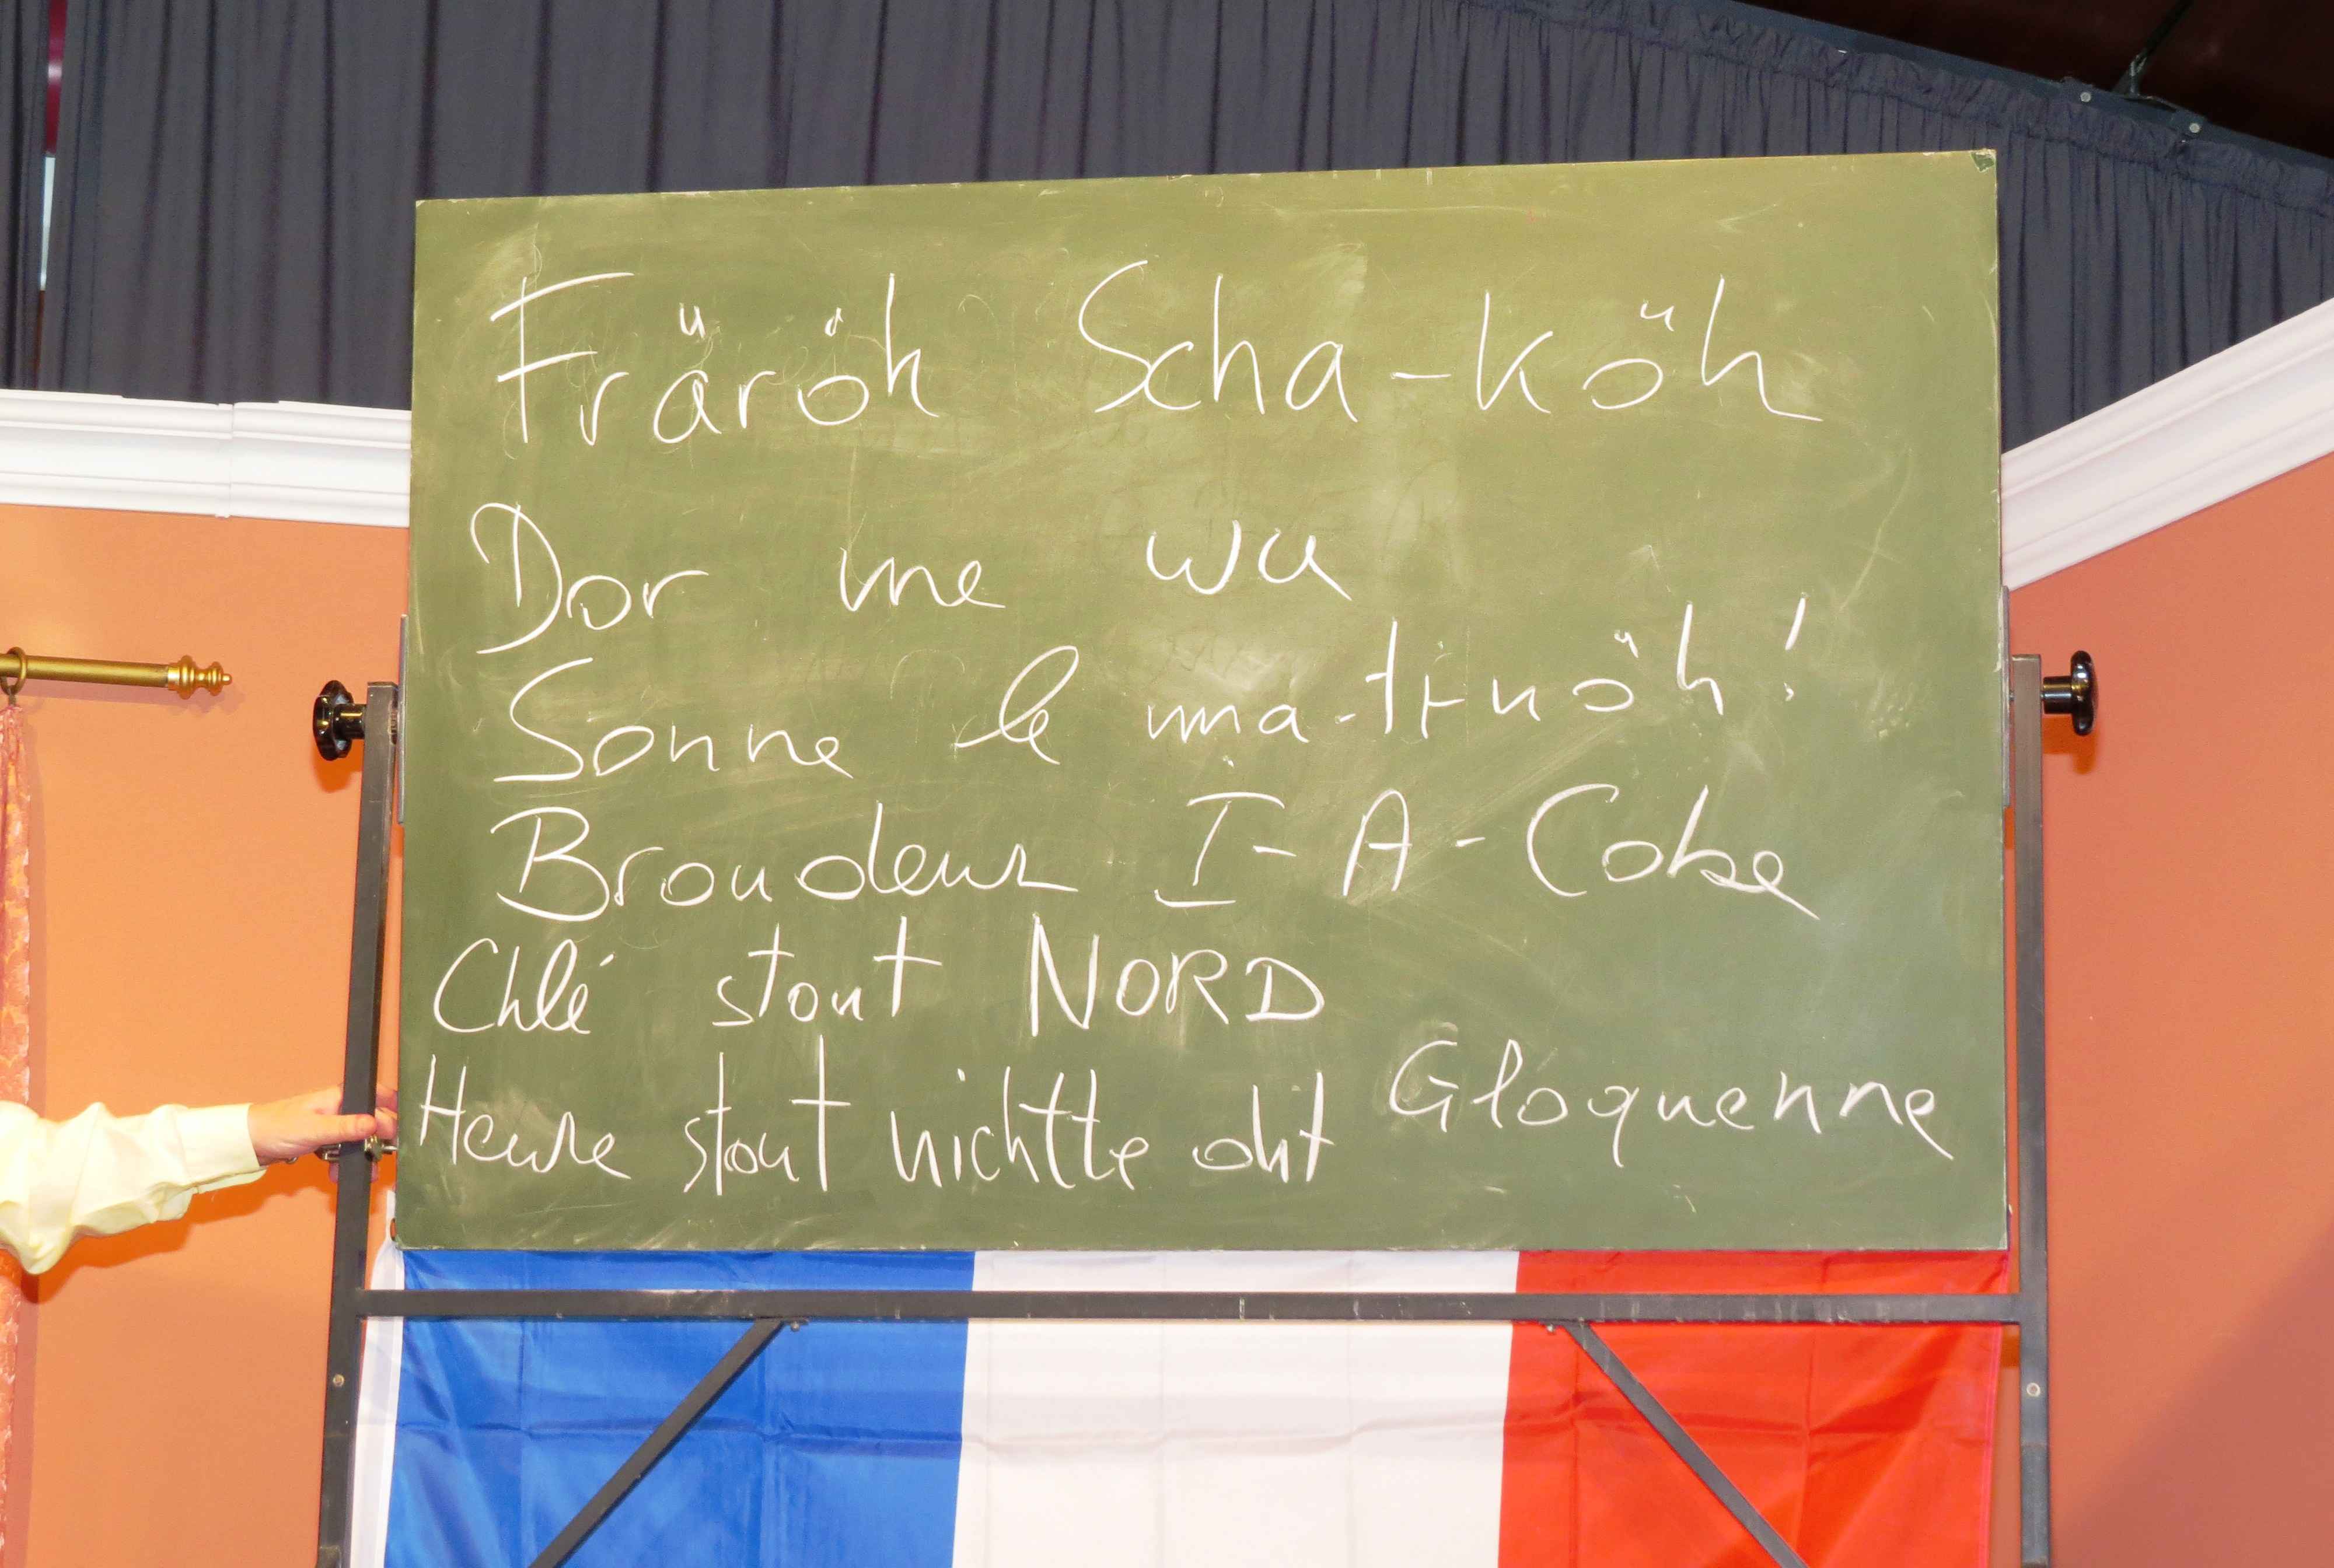 Fräröh Scha-köh
Dor me wu
Sonne le ma-tinöh!
Broudeur I-A-Cobe
Chlé stout NORD
Heure stout nichtte oht Gloquenne